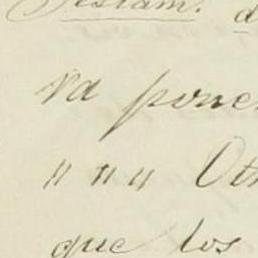 Testam. d
va poner
" " " Otr
que los